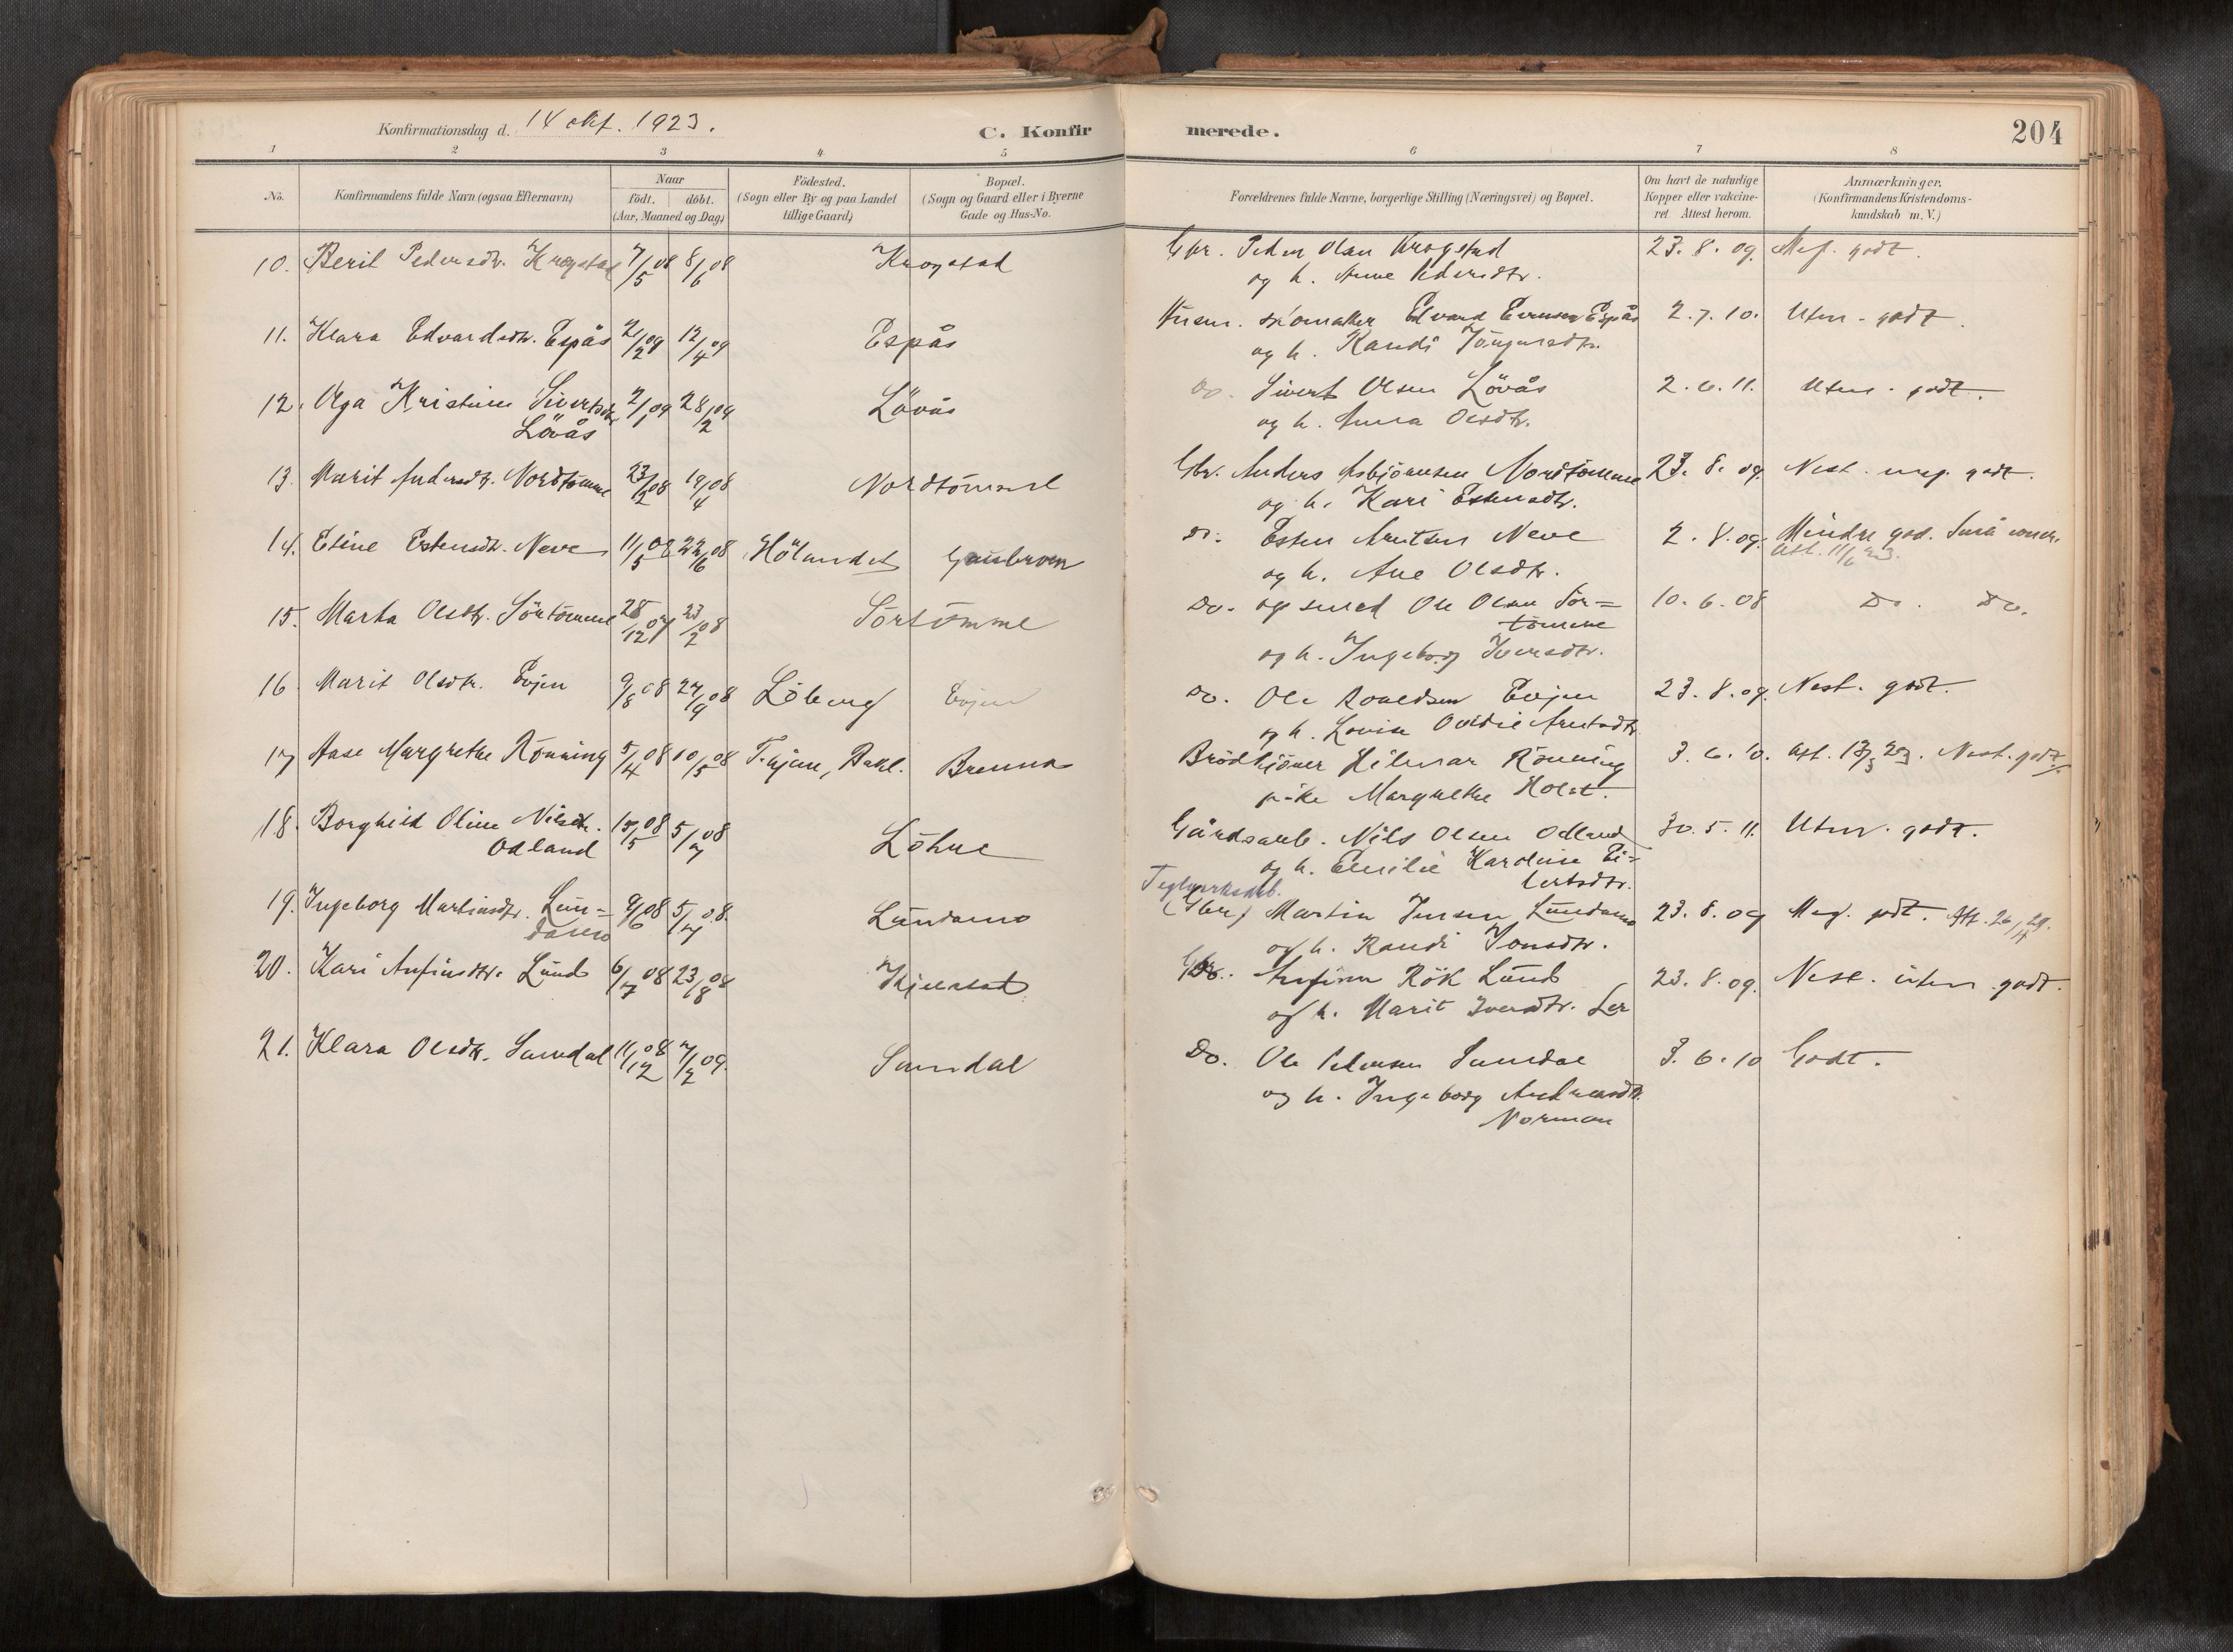 Konfirmationsdag d. 14 okt. 1923.
C. Konfirmerede.
204
1 2 3 4 5 6 7 8
No.
Konfirmandens fulde Navn (ogsaa Efternavn)
Naar
födt. döbt.
(Aar, Maaned og Dag)
Födested.
(Sogn eller By og paa Landet
tillige Gaard)
Bopæl.
(Sogn og Gaard eller i Byerne
Gade og Hus-No.
Forældrenes fulde Navne, borgerlige Stilling (Næringsvei) og Bopæl.
Om havt de naturlige
Kopper eller vakcine-
ret Attest herom.
Anmærkninger.
(Konfirmandens Kristendoms-
kundskab m. V.)
10. Berit Pedersdtr. Krogstad 7/5 08 8/6 08 Krogstad Gbr. Peder Olsen Krogstad 23. 8. 09. Meg. godt.
og h. Ane Pedersdtr.
11. Klara Edvardsdtr. Espås 2/2 09 12/4 09 Espås Husm. skomaker Edvard Evensen Espås 2. 7. 10. Utm. godt.
og h. Randi
12. Olga Kristine Sivertsdtr. 2/1 09 28/2 09 Lövås Do. Sivert Olsen Lövås 2. 6. 11. Utm. godt.
Lövås
og h. Anna Olsdtr.
13. Marit Andersdtr. Nordtömme 23/2 08 19/4 08 Nordtömme Gbr. Anders Asbjörnsen Nordtömme 23. 8. 09. Nest. meg. godt.
og h. Kari Estensdtr.
14. Eline Estensdtr. Neve 11/5 08 22/6 08 Hölandet Gaubroen Do. Esten Arntsen Neve 2. 8. 09. Mindre god. Små evner.
att. 11/6 23.
og h. Ane Olsdtr.
15. Marta Olsdtr. Sörtömme 28/12 07 23/2 08 Sörtömme Do. og smed Ole Olsen Sör= 10. 6. 08 Do. Do.
tömme
og h. Ingeborg Iversdtr.
16. Marit Olsdtr. Evjen 9/8 08 27/9 08 Löberg Evjen Do. Ole Roaldsen Evjen 23. 8. 09. Nest. godt.
og h. Lovise Ovidie Arntsdtr.
17 Aase Margrethe Rönning 5/4 08 10/5 08 T.hjem, Bakl. Brenna Brödkjörer Hilmar Rönning 3. 6. 10. Att. 13/3 23. Nest. godt.
pike Margrethe Holst.
18. Borghild Oline Nilsdtr. 15/5 08 5/7 08 Löhre Gårdsarb. Nils Olsen Odland 30. 5. 11. Utm. godt.
Odland
og h. Emilie Karoline Ei=
lertsdtr.
Teglverksarb.
19. Ingeborg Martinsdtr. Lun= 9/6 08 5/7 08. Lundamo (Gbr.) Martin Jensen Lundamo 23. 8. 09 Meg. godt. Att. 26/4 29.
damo
og h. Randi Jonsdtr.
20. Kari Anfinsdtr. Lund 6/7 08 23/8 08 Kjelstad Gbr. Anfinn Rök Lund 23. 8. 09. Nest. utm. godt.
og h. Marit Iversdtr. Ler
21. Klara Olsdtr. Samdal 11/12 08 7/2 09. Samdal Do. Ole Pedersen Samdal 3. 6. 10 Godt.
og h. Ingeborg Andreasdtr.
Norman